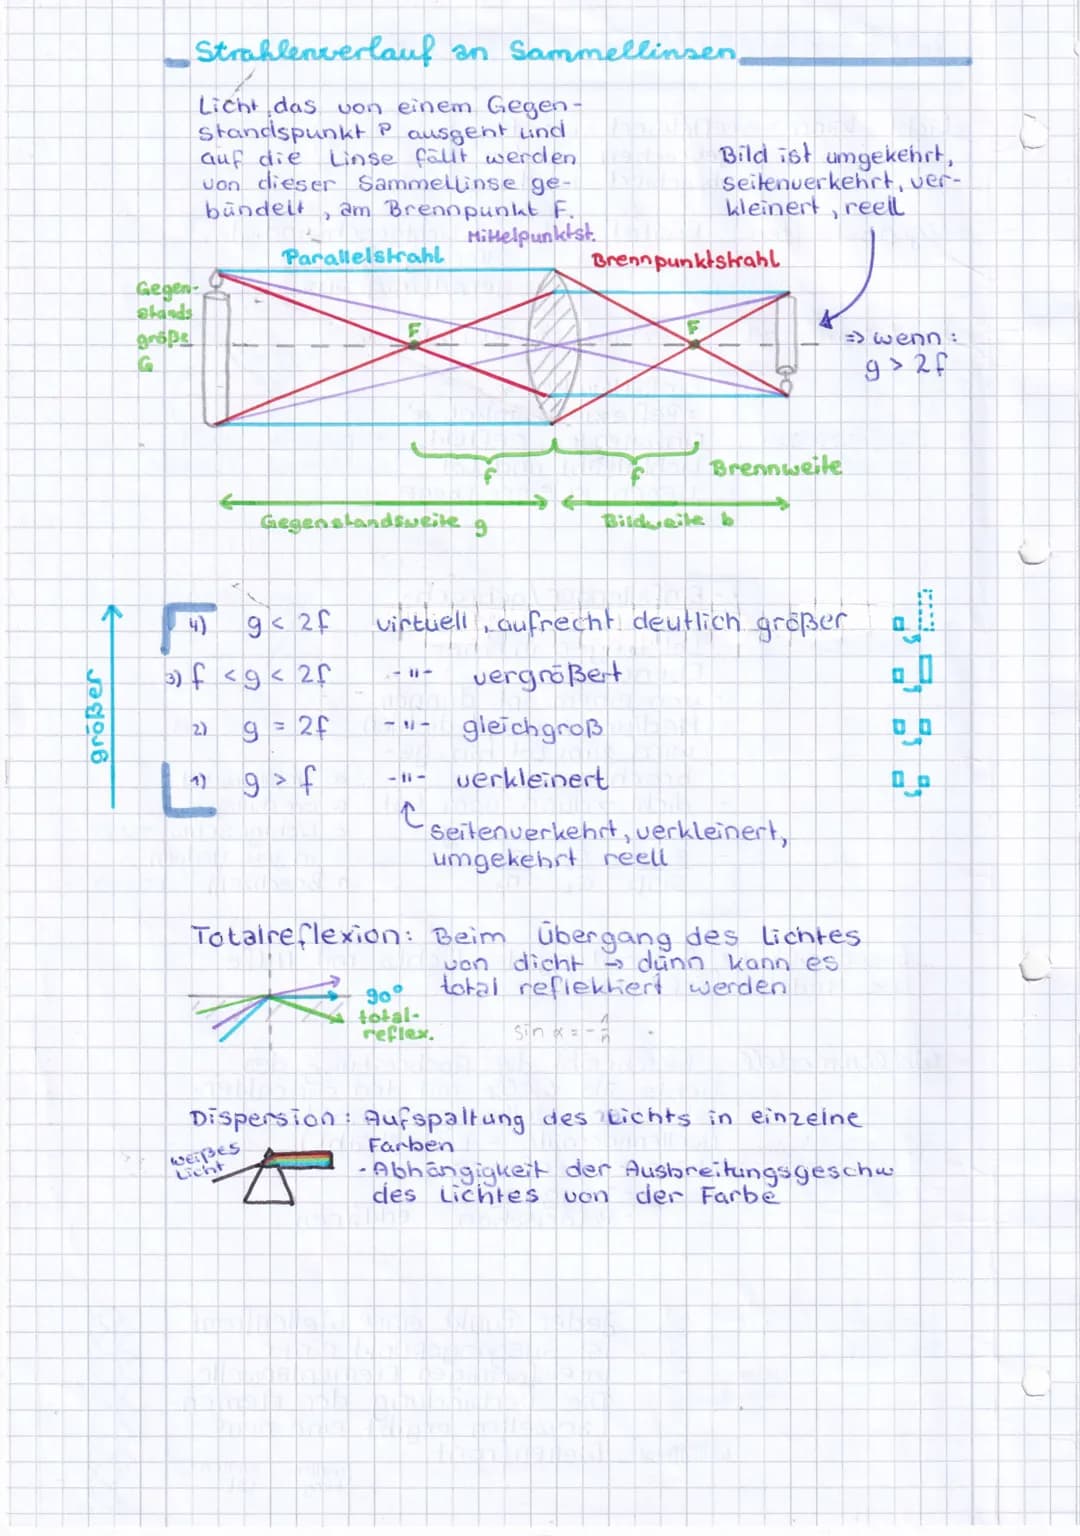 Strahlenverlauf an Sammellinsen
Licht, das von einem Gegen-
standspunkt P ausgeht und
auf die Linse fällt werden
von dieser Sammellinse ge-
bündelt, am Brennpunkt F.
Bild ist umgekehrt,
seitenverkehrt, ver-
kleinert, reell
Mittelpunktst.
Parallelstrahl
Brennpunktstrahl
Gegen-
stands
größe
G
F
F
=> wenn:
g > 2f
f
f
Brennweite
Gegenstandsweite g
Bildweite b
größer
4) g < 2f virtuell, aufrecht deutlich größer
3) f < g < 2f -"- vergrößert
2) g = 2f -"- gleichgroß
1) g > f -"- verkleinert
seitenverkehrt, verkleinert,
umgekehrt reell
Totalreflexion: Beim Übergang des Lichtes
von dicht → dünn kann es
total reflektiert werden
90°
total-
reflex.
sin α = - 1/n
Dispersion: Aufspaltung des Lichts in einzelne
Farben
weißes
Licht
- Abhängigkeit der Ausbreitungsgeschw
des Lichtes von der Farbe